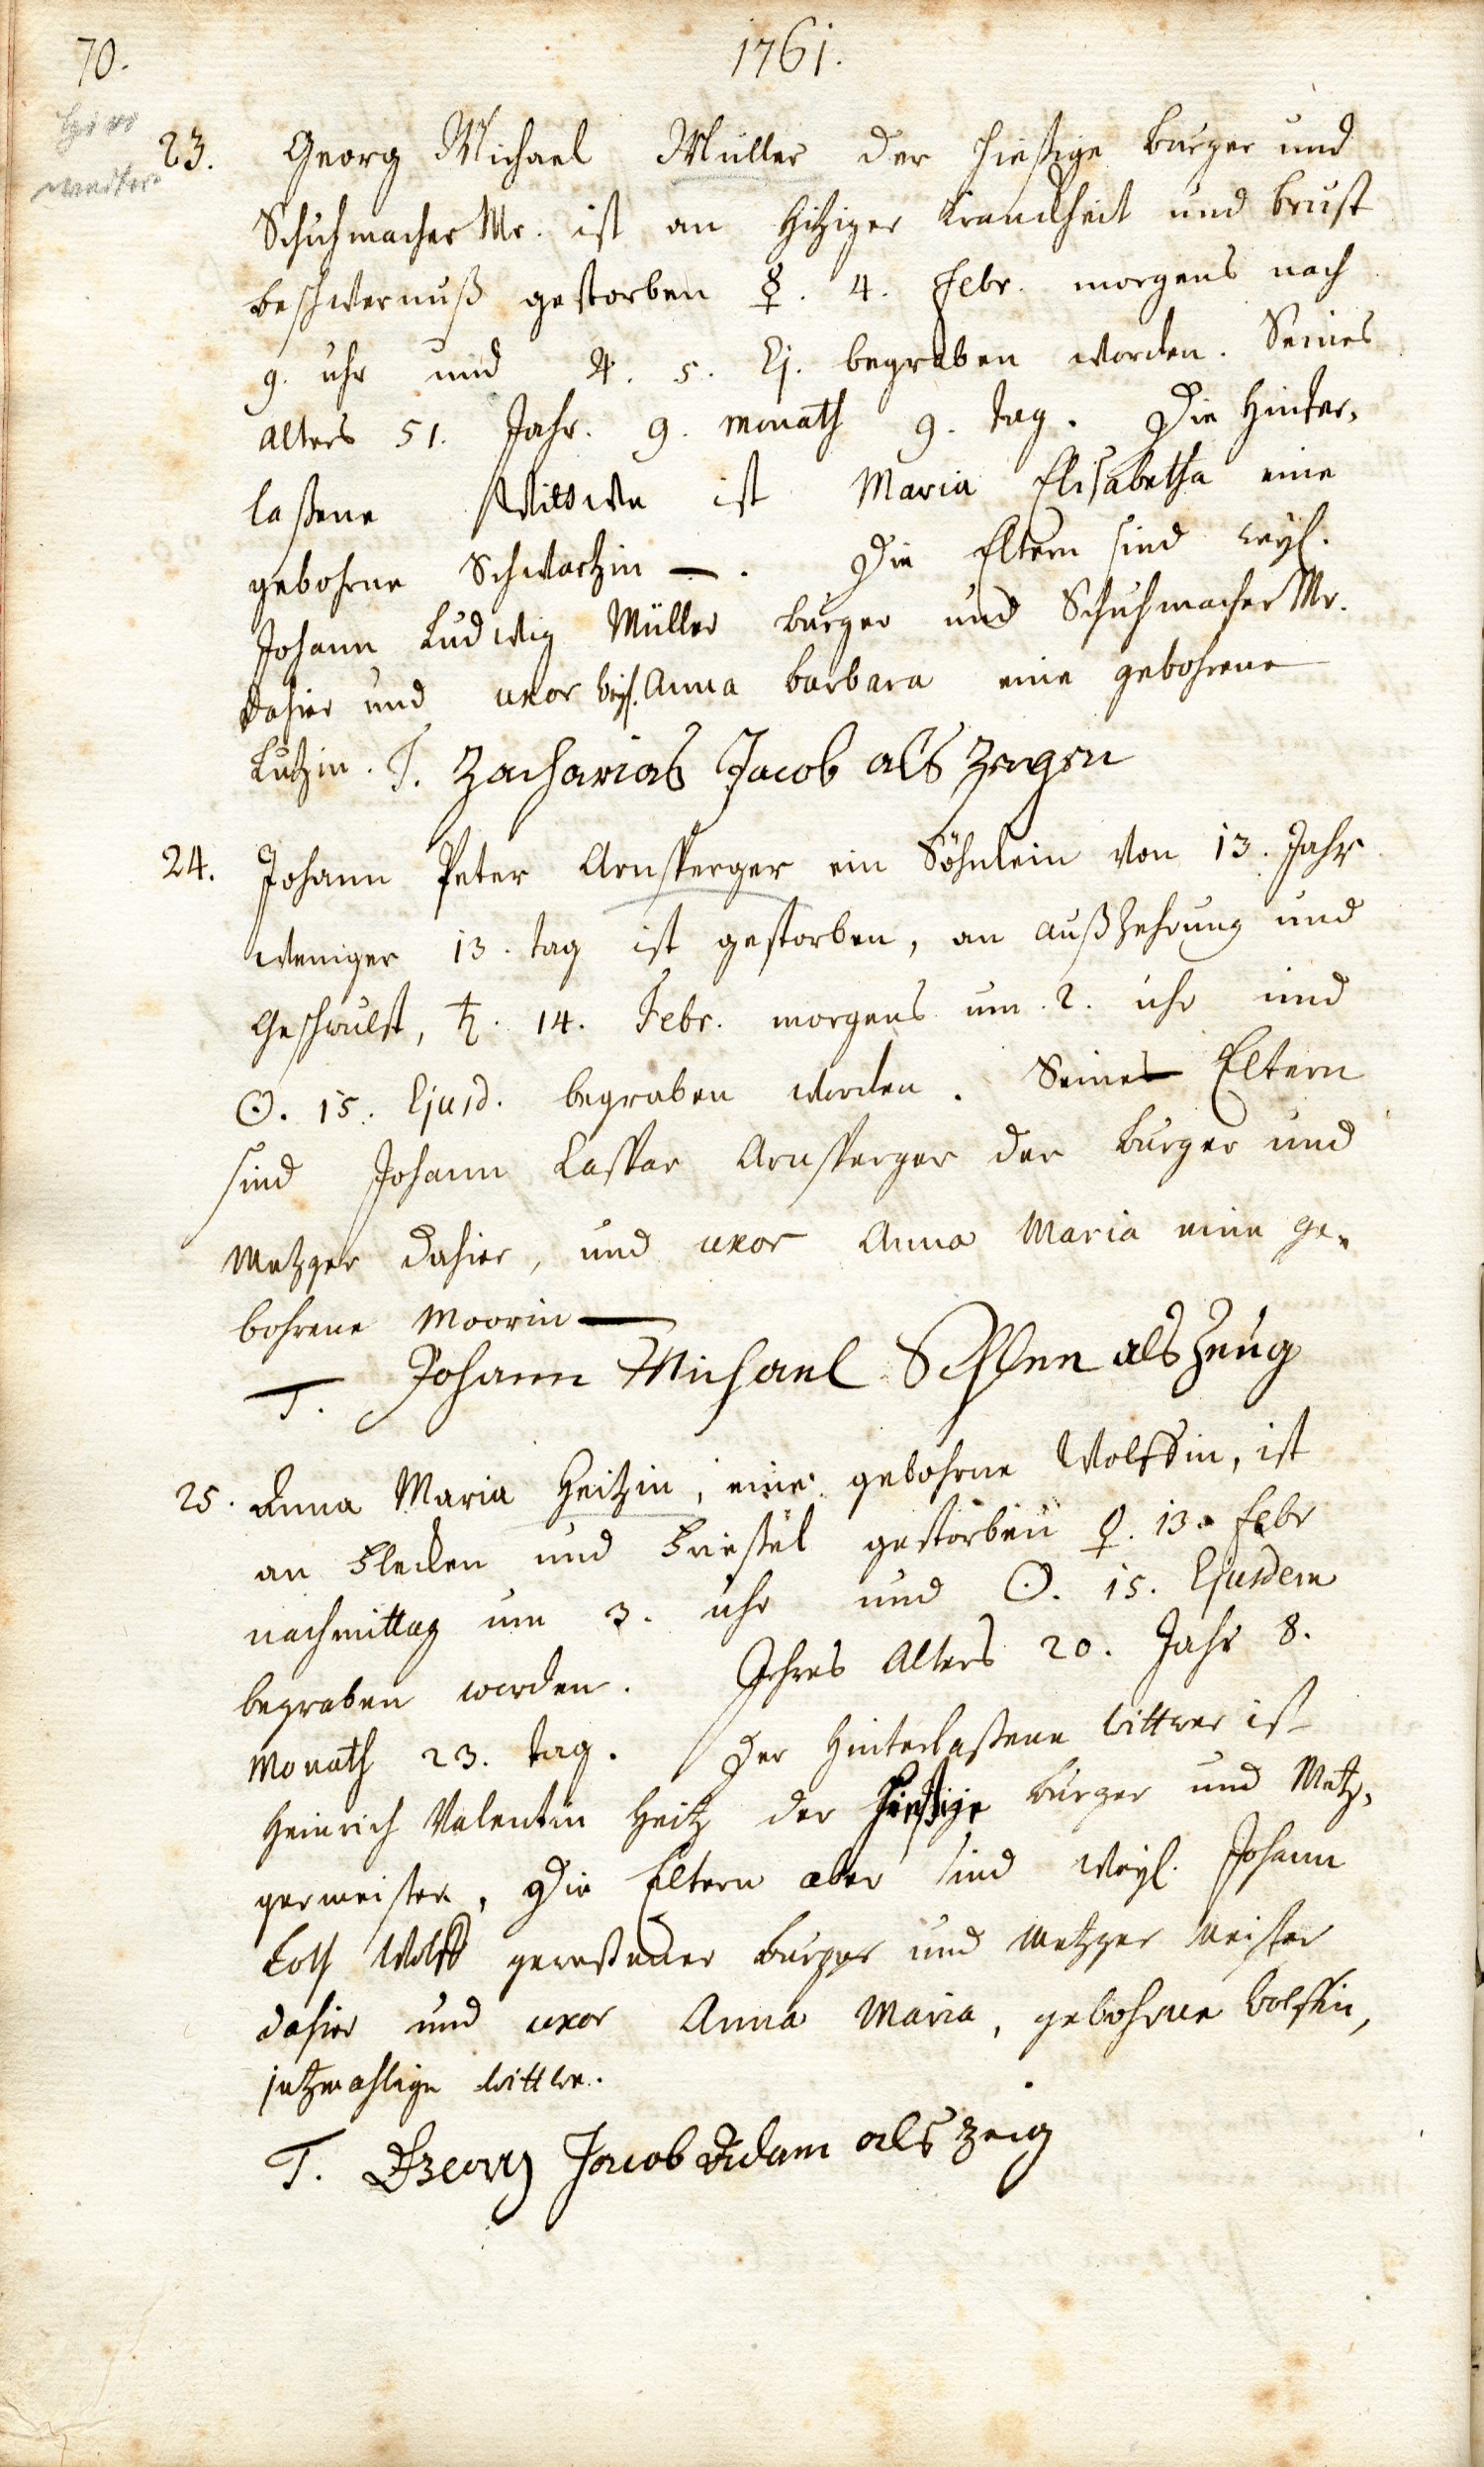 70.
1761.
hier
weiter
23. Georg Michael Müller der hießige burger und
Schuhmacher Mr. ist an hitziger Kranckheit und brust
beschwernuß gestorben ☿. 4. Febr. morgens nach
9. uhr und ♃. 5. Ej. begraben worden. Seines
alters 51. Jahr. 9. monath 9. tag. Die Hinter,
laßene Wittwe ist Maria Elisabetha eine
gebohrne Schwartzin —. Die Eltern sind weyl.
Johann Ludwig Müller burger und Schuhmacher Mr.
dahier und uxor weyl. Anna barbara eine gebohrene
Lutzin. T. Zacharias Jacob als zeugen
24. Johann Peter Arnsperger ein Söhnlein von 13. Jahr
weniger 13. tag ist gestorben, an außzehrung und
Geschwulst, ♄. 14. Febr. morgens um 2. uhr und
☉. 15. Ejusd. begraben worden. Seine Eltern
sind Johann Caspar Arnsperger der burger und
Metzger dahier, und uxor Anna Maria eine ge-
bohrene Moorin —
T. Johann Michael als Zeug
25. Anna Maria Heitzin, eine gebohrne Wolffin, ist
an Flecken und Frießel gestorben ♀. 13. Febr
nachmittag um 3. uhr und ☉. 15. Ejusdem
begraben worden. Ihres Alters 20. Jahr 8.
Monath 23. tag. Der Hinterlaßene Wittwer ist
Heinrich Valentin Heitz der hießige burger und Metz,
germeister, Die Eltern aber sind weyl. Johann
Wolff geweßener burger und Metzger Meister
dahier und uxor Anna Maria, gebohrne Wolffin,
jetzmahlige wittwe.
T. Georg Jacob Adam als zeig